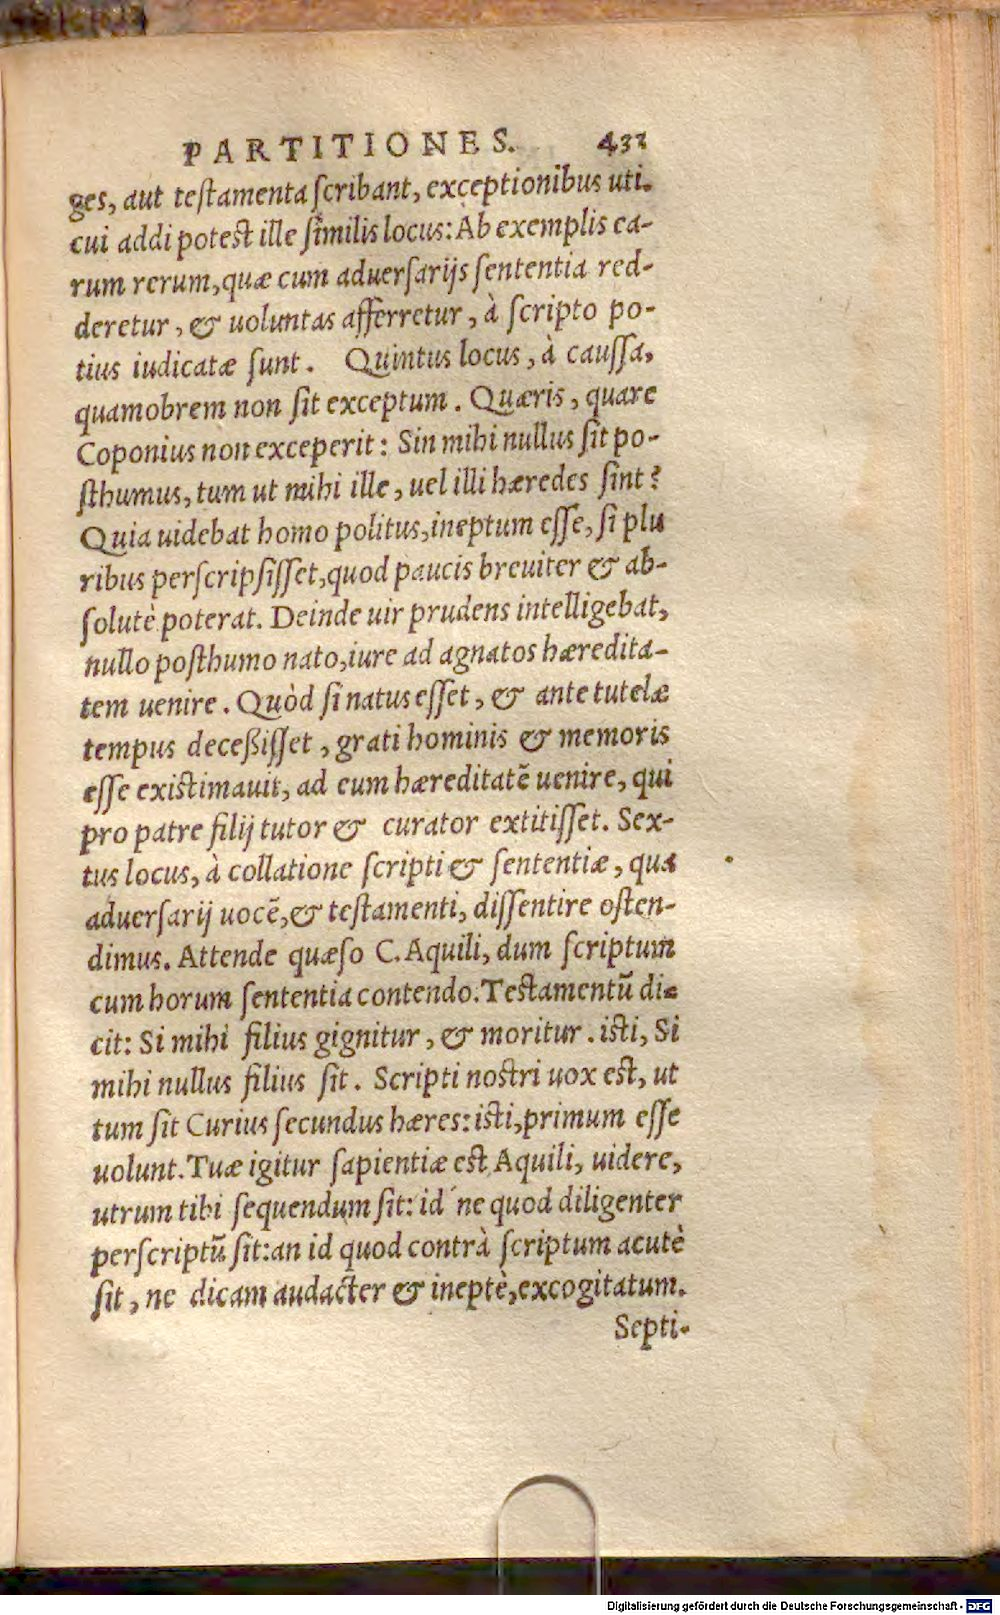 PARTITIONES. 431
ges, aut testamenta scribant, exceptionibus uti.
cui addi potest ille similis locus: Ab exemplis ea-
rum rerum, quæ cum aduersarijs sententia red-
deretur, & uoluntas afferretur, à scripto po-
tius iudicatæ sunt. Quintus locus, à caussa,
quamobrem non sit exceptum. Quæris, quare
Coponius non exceperit: Sin mihi nullus sit po-
sthumus, tum ut mihi ille, uel illi hæredes sint?
Quia uidebat homo politus, ineptum esse, si plu
ribus perscripsisset, quod paucis breuiter & ab-
solutè poterat. Deinde uir prudens intelligebat,
nullo posthumo nato, iure ad agnatos hæredita-
tem uenire. Quòd si natus esset, & ante tutelæ
tempus deceßisset, grati hominis & memoris
esse existimauit, ad eum hæreditatē uenire, qui
pro patre filij tutor & curator extitisset. Sex-
tus locus, à collatione scripti & sententiæ, qua
aduersarij uocē, & testamenti, dissentire osten-
dimus. Attende quæso C. Aquili, dum scriptum
cum horum sententia contendo. Testamentū di-
cit: Si mihi filius gignitur, & moritur. isti, Si
mihi nullus filius sit. Scripti nostri uox est, ut
tum sit Curius secundus hæres: isti, primum esse
uolunt. Tuæ igitur sapientiæ est Aquili, uidere,
utrum tibi sequendum sit: id´ne quod diligenter
perscriptū sit: an id quod contrà scriptum acutè
sit, ne dicam audacter & ineptè, excogitatum.
Septi-
Digitalisierung gefördert durch die Deutsche Forschungsgemeinschaft - DFG